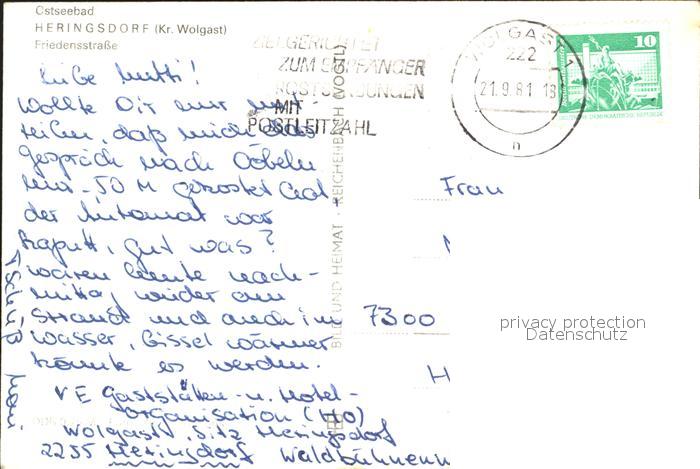 Ostseebad
HERINGSDORF (Kr. Wolgast)
Friedensstraße
Liebe Mutti!
wollte Dir nur mit-
teilen, daß mich das
Gespräch nach Döbeln
nur -,50 M gekostet hat
der Automat war
kaputt, gut was?
waren heute nach-
mittag wieder am
Strand und auch im
Wasser, bissel wärmer
könnte es werden.
Tschüß
VE Gaststätten- u. Hotel-
organisation (HO)
Wolgast, Sitz Heringsdorf
2255 Heringsdorf Waldbühnenw
ZIELGERICHTET
ZUM EMPFÄNGER
POSTSENDUNGEN
MIT
POSTLEITZAHL
BILD UND HEIMAT · REICHENBACH (VOGTL)
WOLGAST 1
222
21.9.81 18
n
10
DEUTSCHE DEMOKRATISCHE REPUBLIK
Frau
7300
H
privacy protection
Datenschutz